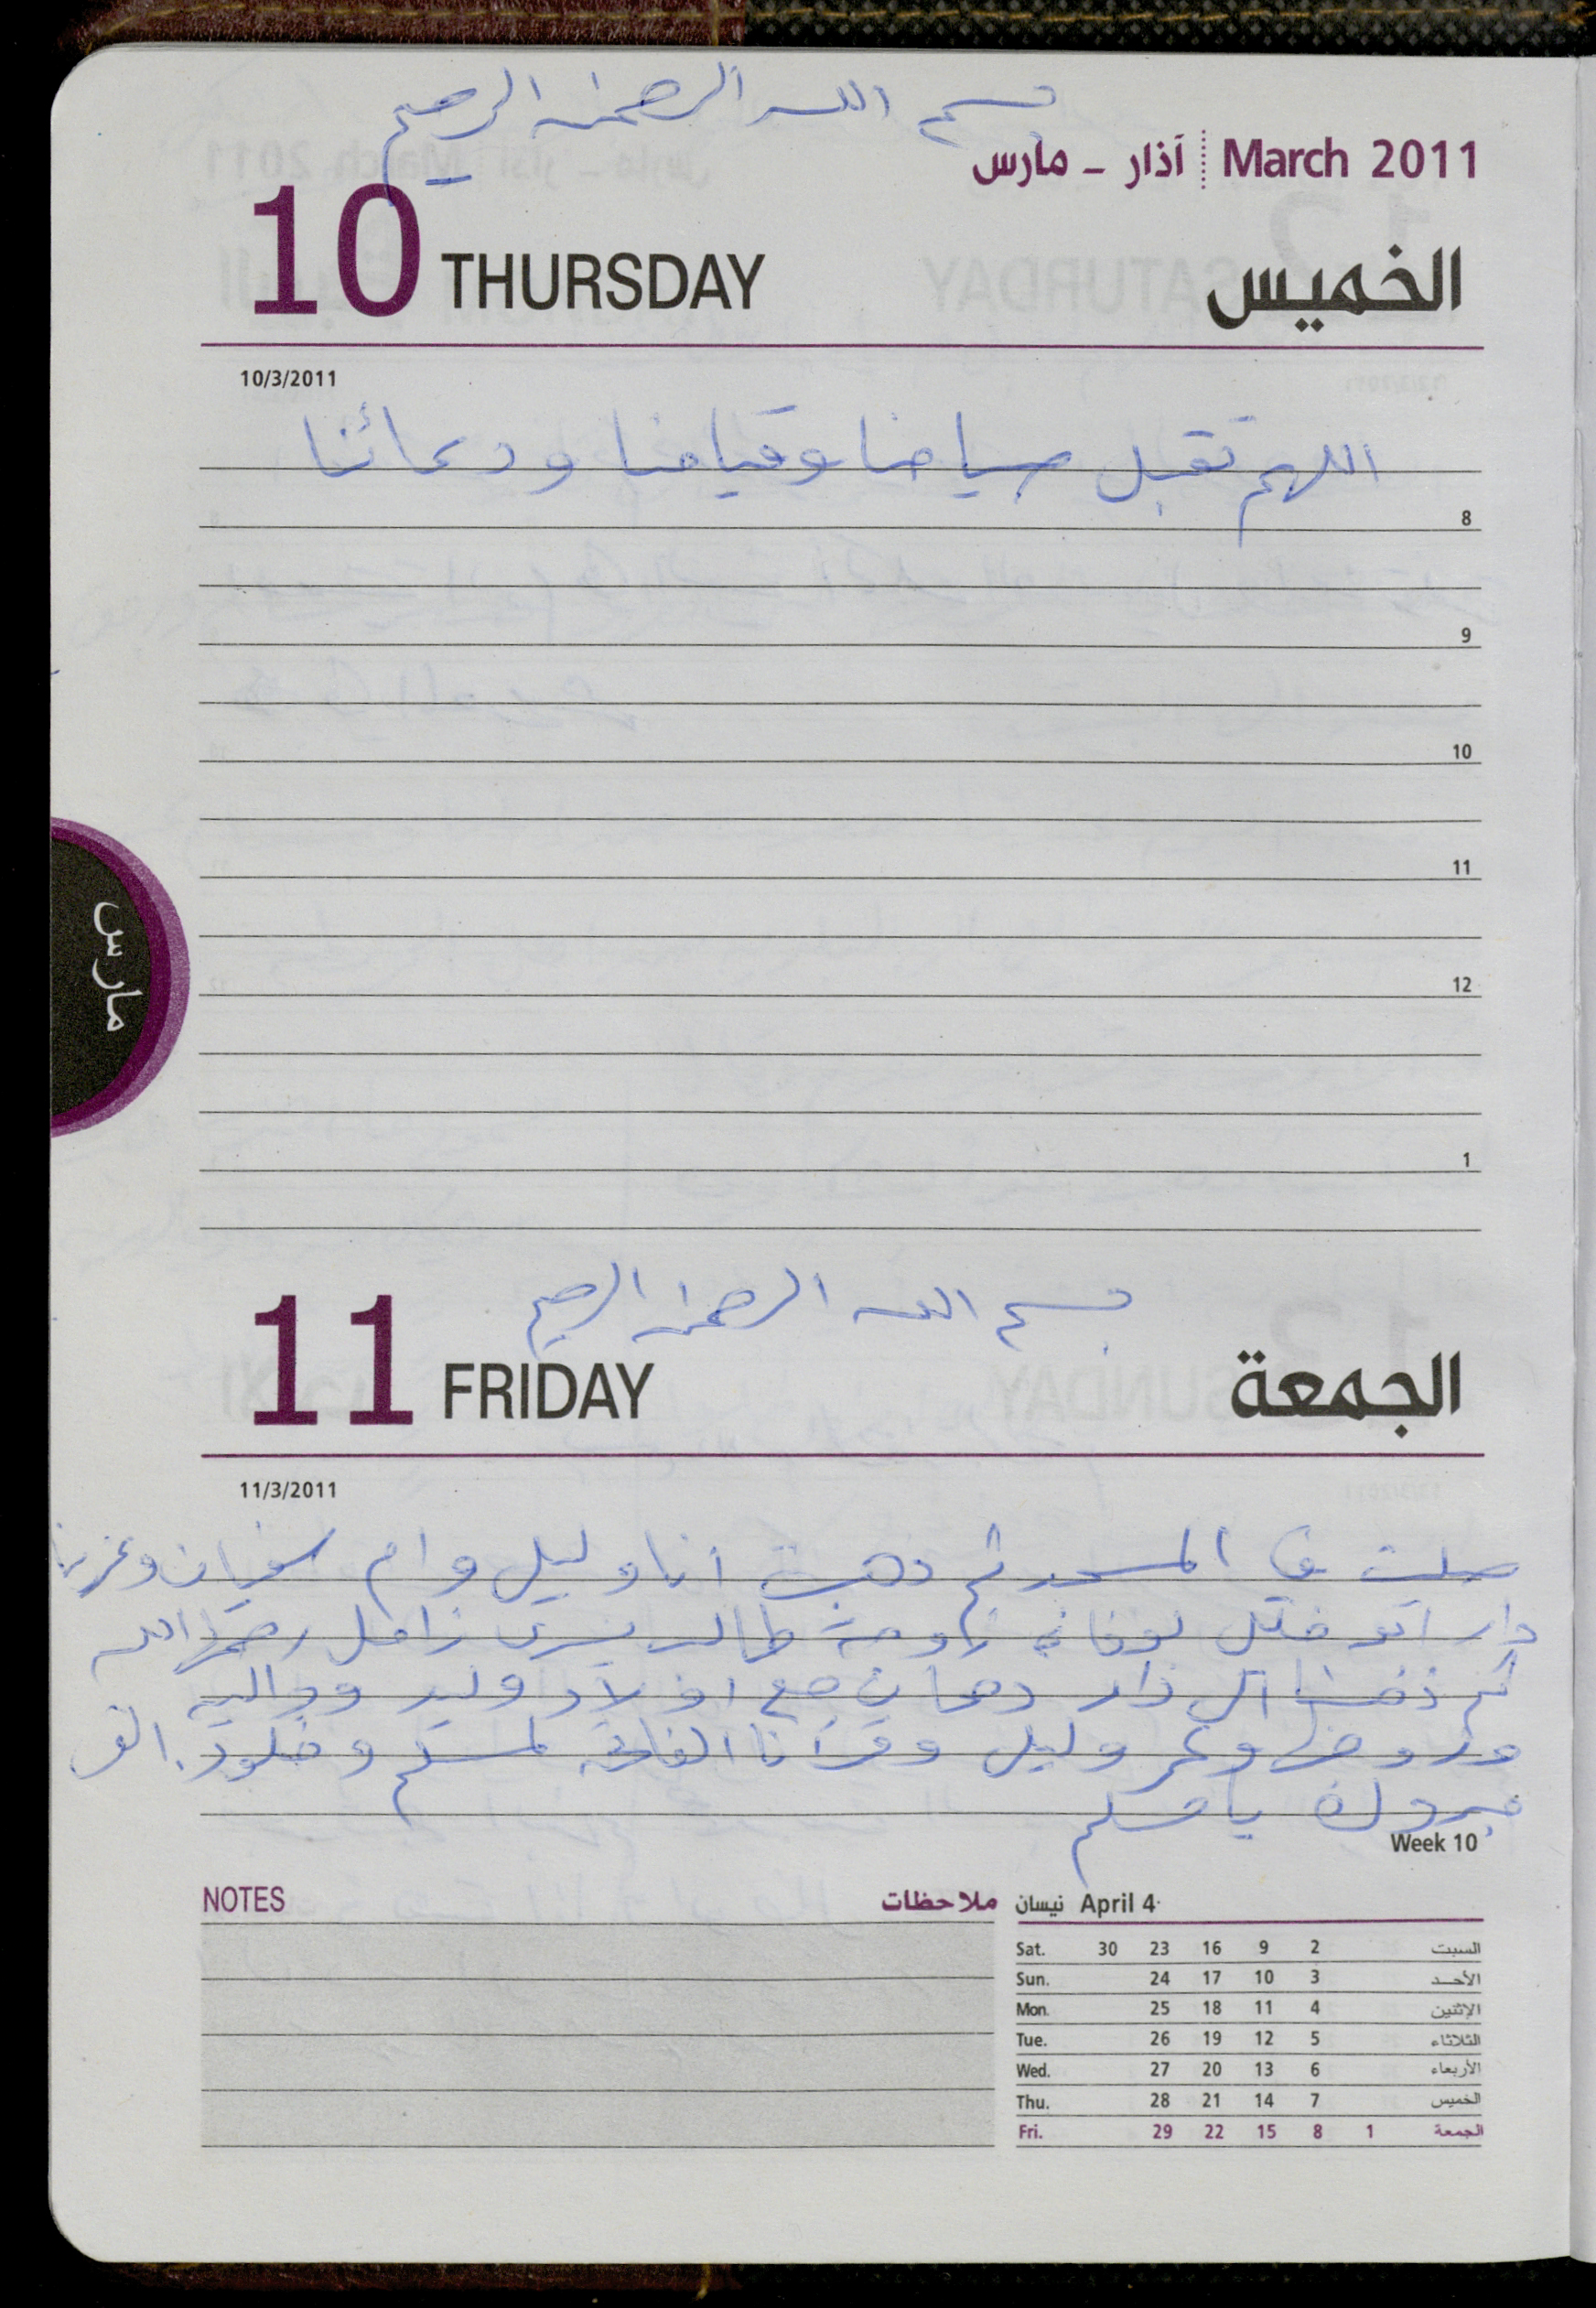 بسم الله الرحمن الرحيم
March 2011 آذار - مارس
10 THURSDAY الخميس
10/3/2011
اللهم تقبل صيامنا وقيامنا ودعائنا
8
9
10
11
12
1
مارس
بسم الله الرحمن الرحيم
11 FRIDAY الجمعة
11/3/2011
صليت في المسجد ثم دهبت أنا وليلى وام سفيان وعزينا
دار ابو بوفاة زوجة طالب يسرى زامل رحمها الله
ثم ذهبنا الى دار دهمان مع اولاد وليد وداليه
وعمر وليلى وقرأنا الفاتحة لمسلم وخلود. الف
مبروك يا مسلم
Week 10
NOTES ملاحظات
نيسان April 4
Sat. 30 23 16 9 2 السبت
Sun. 24 17 10 3 الأحد
Mon. 25 18 11 4 الإثنين
Tue. 26 19 12 5 الثلاثاء
Wed. 27 20 13 6 الأربعاء
Thu. 28 21 14 7 الخميس
Fri. 29 22 15 8 1 الجمعة